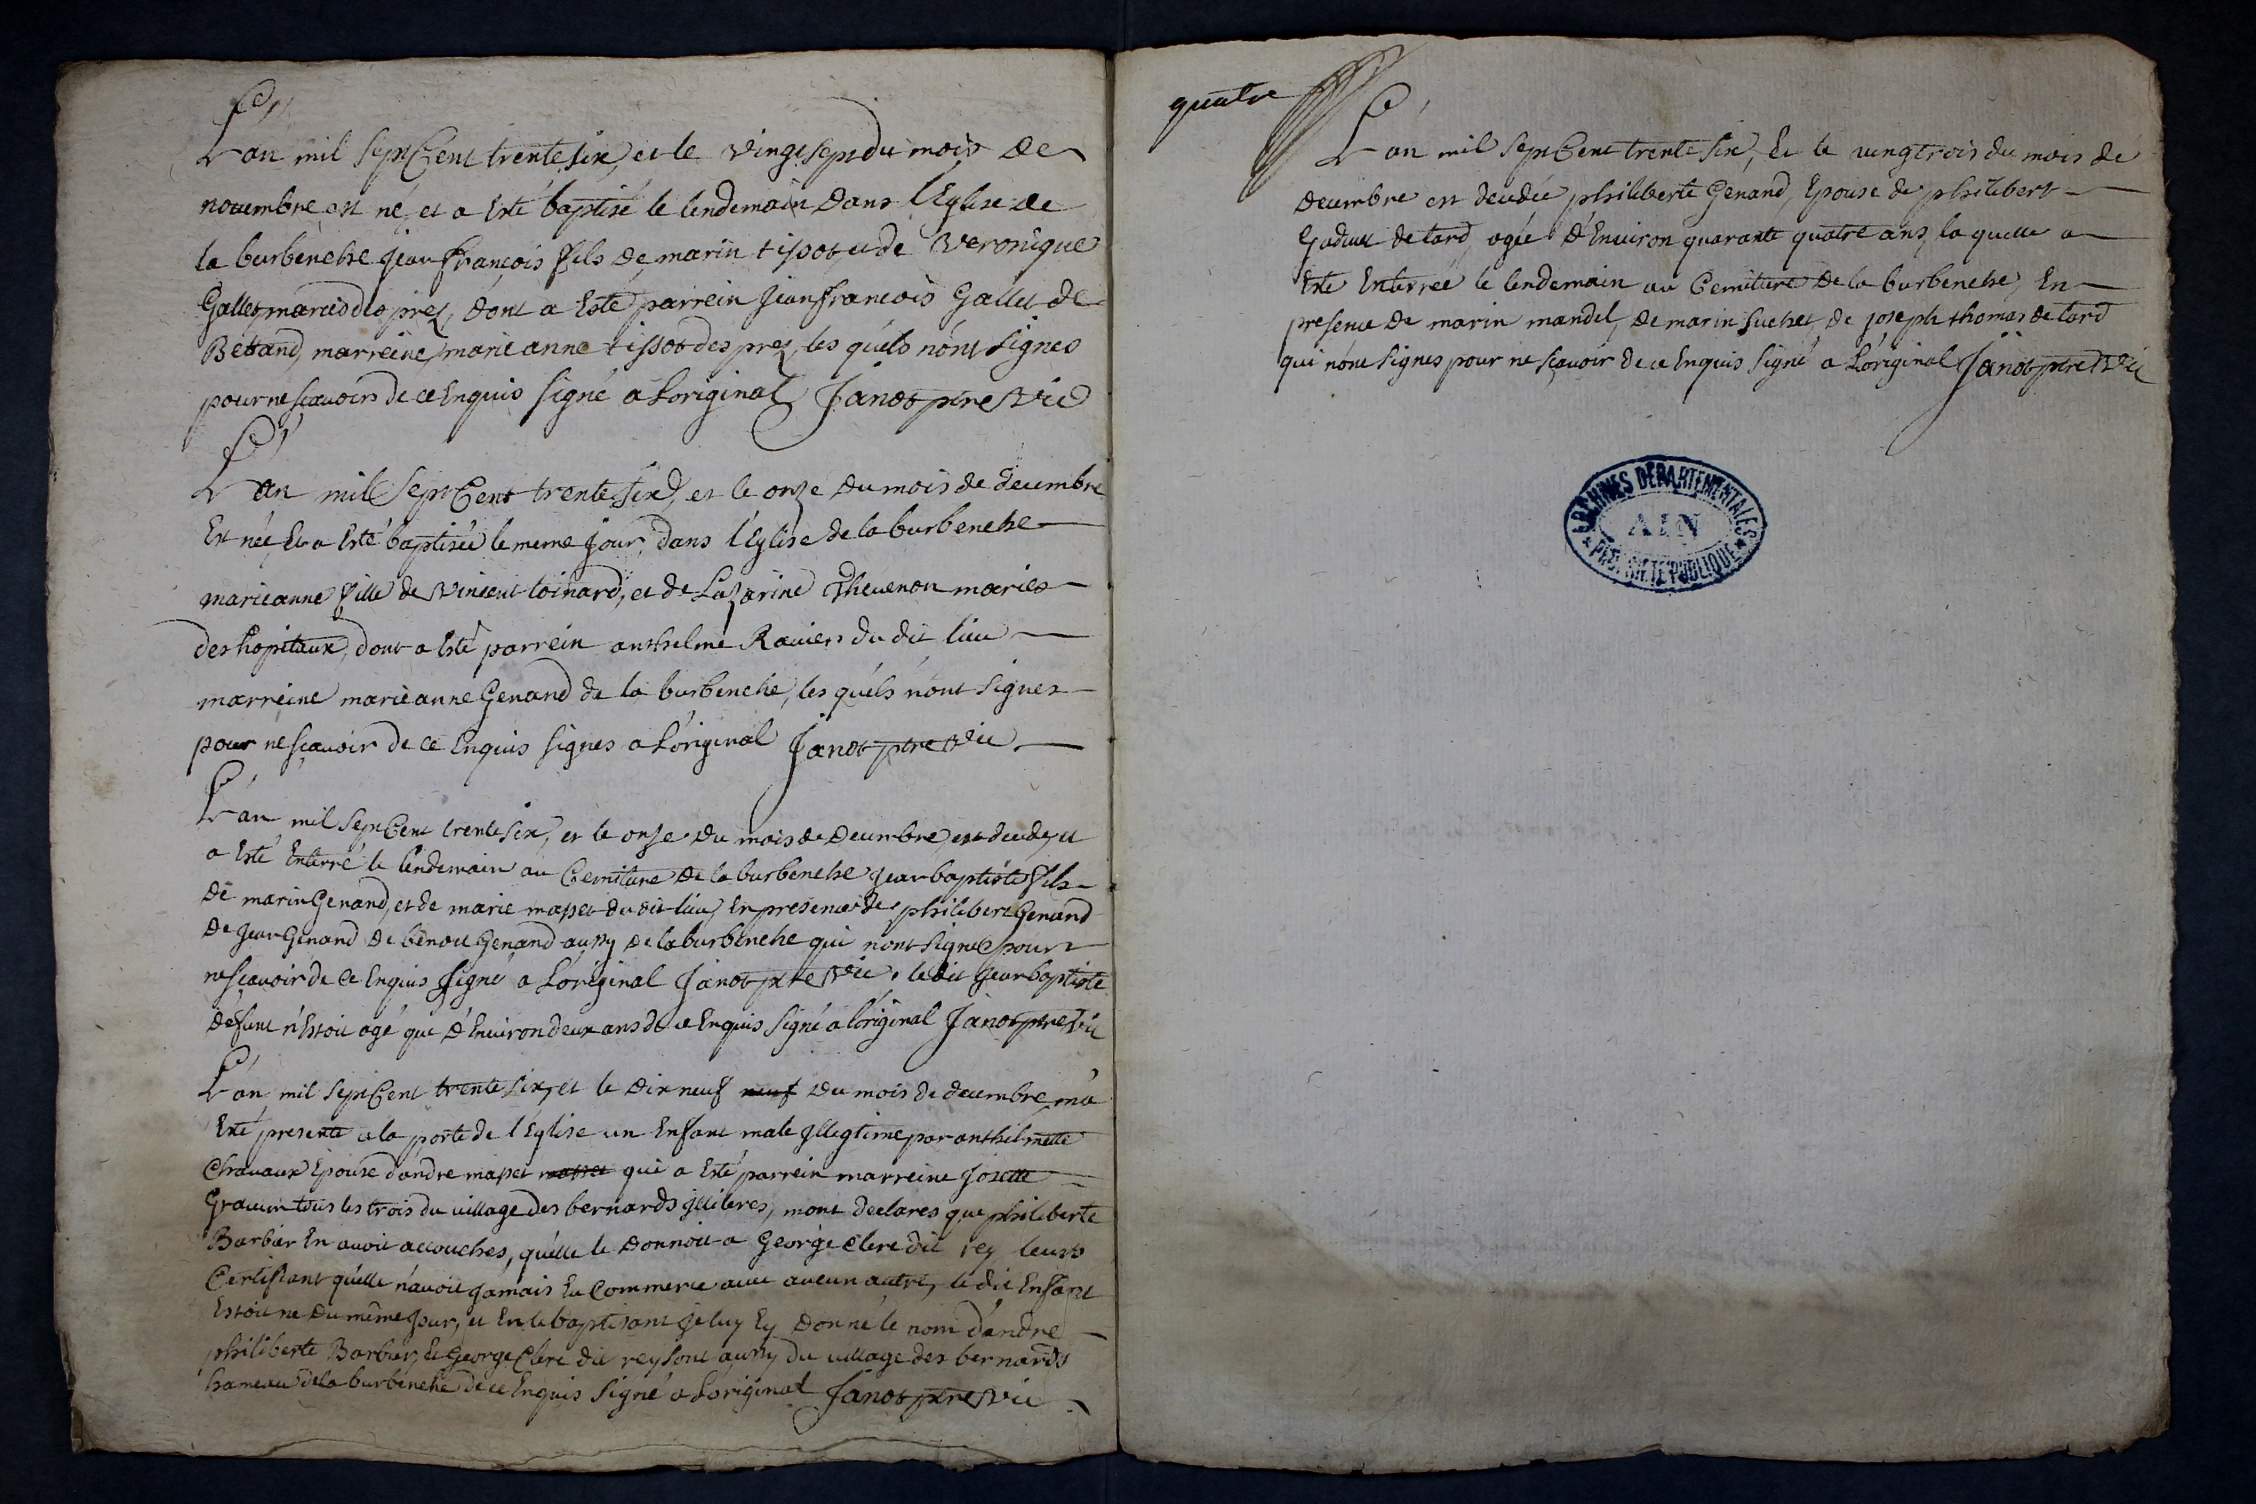 L'an mil sept Cent trente six, et le vingt sept du mois de
novembre est né, et a Esté baptisé le lendemain dans l'Eglise de
la burbenche jean françois fils de marin tissot, et de Veronique
Gallet mariés des prez, dont a Esté parrein jean françois Gallet de
Bettand, marreine marie anne tissot des prez, les quels n'ont signes
pour ne scavoirs de ce Enquis signé a L'original Janot ptre vic
L'an mil sept Cent trente six, et le onze du mois de decembre
Est née, Et a Esté baptisée le meme jour, dans l'Eglise de la burbenche
marieanne fille de Vincent loinard, et de Lazarine Thevenon maries
des hopitaux, dont a Esté parrein anthelme Ravier du dit lieu
marreine marieanne Genand de la burbenche, les quels n'ont signez
pour ne scavoir de ce Enquis signes a L'original Janot ptre vic
L'an mil sept Cent trente six, et le onze du mois de Decembre est decedé, et
a Esté Enterré le lendemain au Cemitiere de la burbenche jean baptiste fils
de marin Genand, et de marie masset du dit lieu, En presence de philibert Genand
de jean Genand de benoit Genand aussy de la burbenche qui n'ont signé pour
ne scavoir de ce Enquis signé a L'original Janot ptre vic. le dit jean baptiste
defunt n'Estoit agé que d'Environ deux ans de ce Enquis signé a l'original Janot ptre vic
L'an mil sept Cent trente six, et le dix neuf neuf du mois de decembre m'a
Esté presenté a la porte de l'Eglise un Enfant male illegtime par anthelmette
Chavaux Epouse d'andre masset masset qui a Esté parrein marreine Josette
Gravier tous les trois du village des bernards, m'ont declares que philiberte
Barbier En avoit accouches, qu'elle le donnoit a George Clerc dit rey leurs
Certifiant qu'elle n'avoit jamais Eu Commerce avec aucun autre, le dit Enfant
Estoit ne du même jour, et En le baptisant je luy Ey donné le nom d'andre
philiberte Barbier, Et George Clerc dit rey sont aussy du village des bernards
hameau de la burbenche de ce Enquis signé a L'original Janot ptre vic
quatre
L'an mil sept Cent trente six, Et le vingtrois du mois de
decembre est decedée philiberte Genand, Epouse de philibert
Godet de tard, agée d'Environ quarante quatre ans, la quelle a
Esté Enterrée le lendemain au Cemitiere de la burbenche, En
presence de marin mandel, de marin suchet, de joseph thomas de tard
qui n'ont signes pour ne scavoir de ce Enquis signé a L'original Janot ptre vic
ARCHIVES DEPARTEMENTALES
AIN
PROPRIETE PUBLIQUE